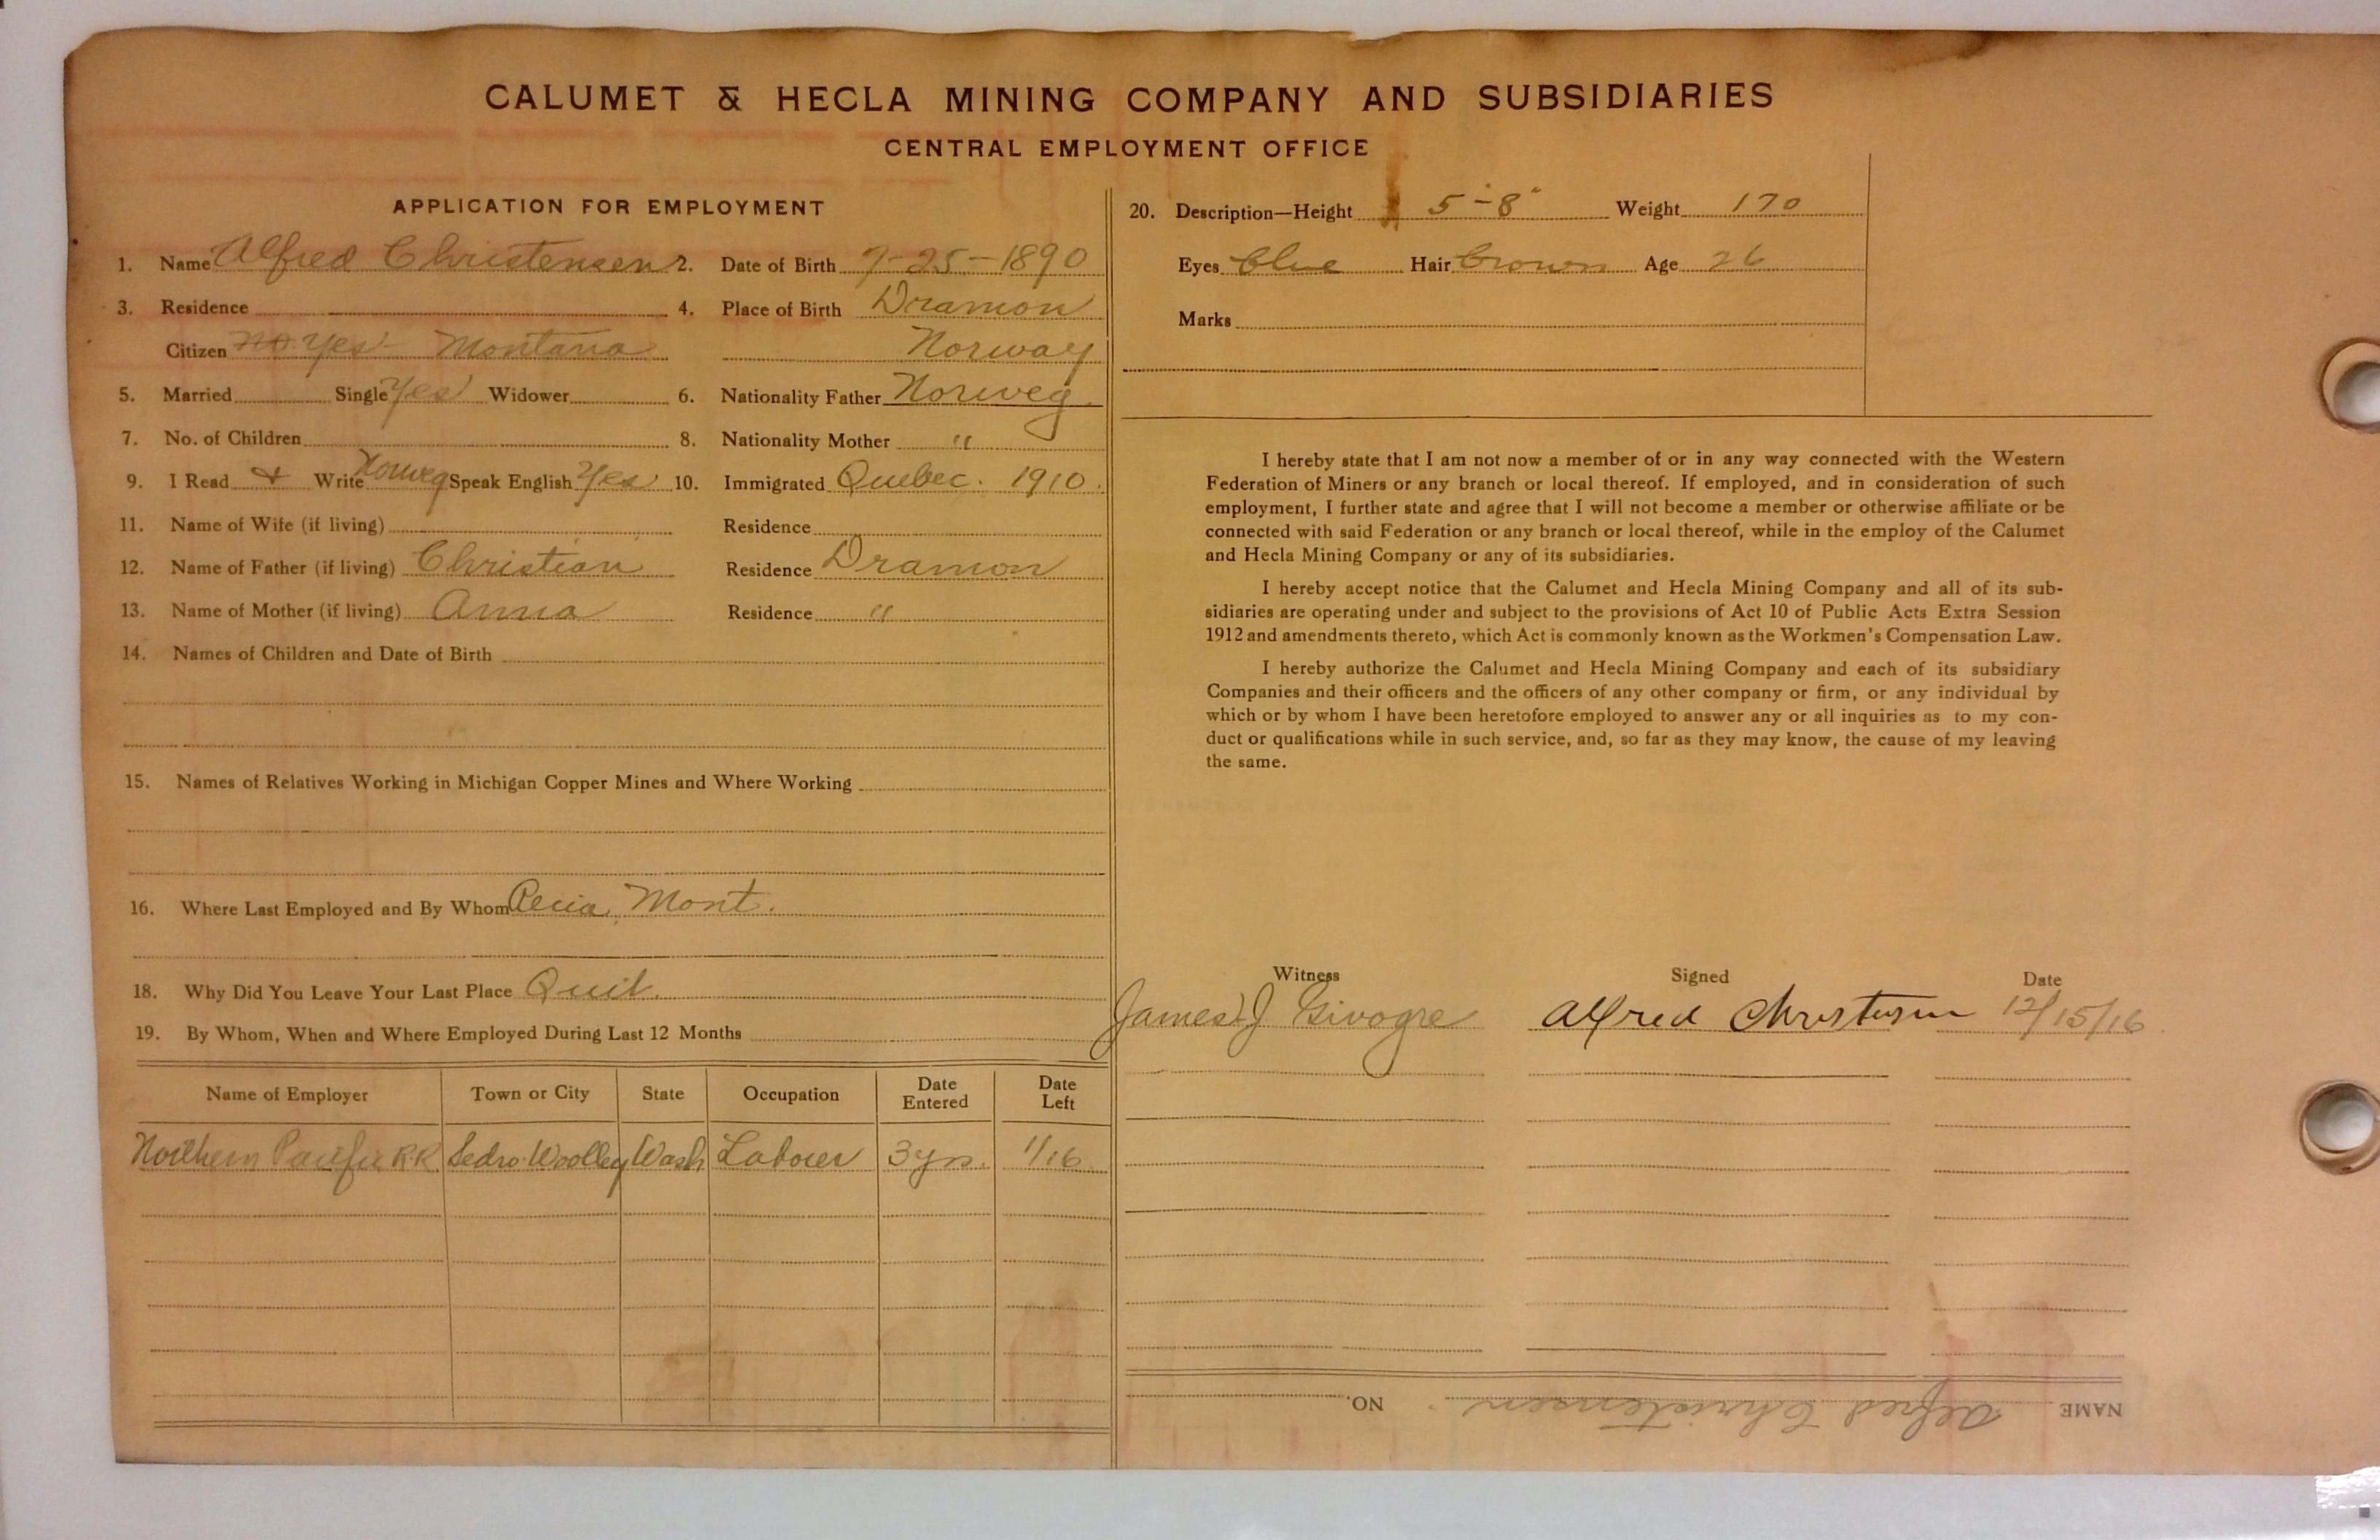 CALUMET & HECLA MINING COMPANY AND SUBSIDIARIES
CENTRAL EMPLOYMENT OFFICE
APPLICATION FOR EMPLOYMENT
1. Name Alfred Christensen 2. Date of Birth 7-25-1890
3. Residence 4. Place of Birth Dramon
Citizen No Yes Montana Norway
5. Married Single Yes Widower 6. Nationality Father Norweg.
7. No. of Children 8. Nationality Mother "
9. I Read & Write Norweg Speak English Yes 10. Immigrated Quebec. 1910.
11. Name of Wife (if living) Residence
12. Name of Father (if living) Christian Residence Dramon
13. Name of Mother (if living) Anna Residence "
14. Names of Children and Date of Birth
15. Names of Relatives Working in Michigan Copper Mines and Where Working
16. Where Last Employed and By Whom Mont.
18. Why Did You Leave Your Last Place Quit.
19. By Whom, When and Where Employed During Last 12 Months
Name of Employer Town or City State Occupation Date Entered Date Left
Northern Pacific R.R. Sedro-Woolley Wash Laborer 3 yrs. 1/16
20. Description—Height 5'-8" Weight 170
Eyes blue Hair brown Age 26
Marks
I hereby state that I am not now a member of or in any way connected with the Western
Federation of Miners or any branch or local thereof. If employed, and in consideration of such
employment, I further state and agree that I will not become a member or otherwise affiliate or be
connected with said Federation or any branch or local thereof, while in the employ of the Calumet
and Hecla Mining Company or any of its subsidiaries.
I hereby accept notice that the Calumet and Hecla Mining Company and all of its sub-
sidiaries are operating under and subject to the provisions of Act 10 of Public Acts Extra Session
1912 and amendments thereto, which Act is commonly known as the Workmen's Compensation Law.
I hereby authorize the Calumet and Hecla Mining Company and each of its subsidiary
Companies and their officers and the officers of any other company or firm, or any individual by
which or by whom I have been heretofore employed to answer any or all inquiries as to my con-
duct or qualifications while in such service, and, so far as they may know, the cause of my leaving
the same.
Witness Signed Date
James J Givogre Alfred Christensen 12/15/16
NAME Alfred Christensen NO.